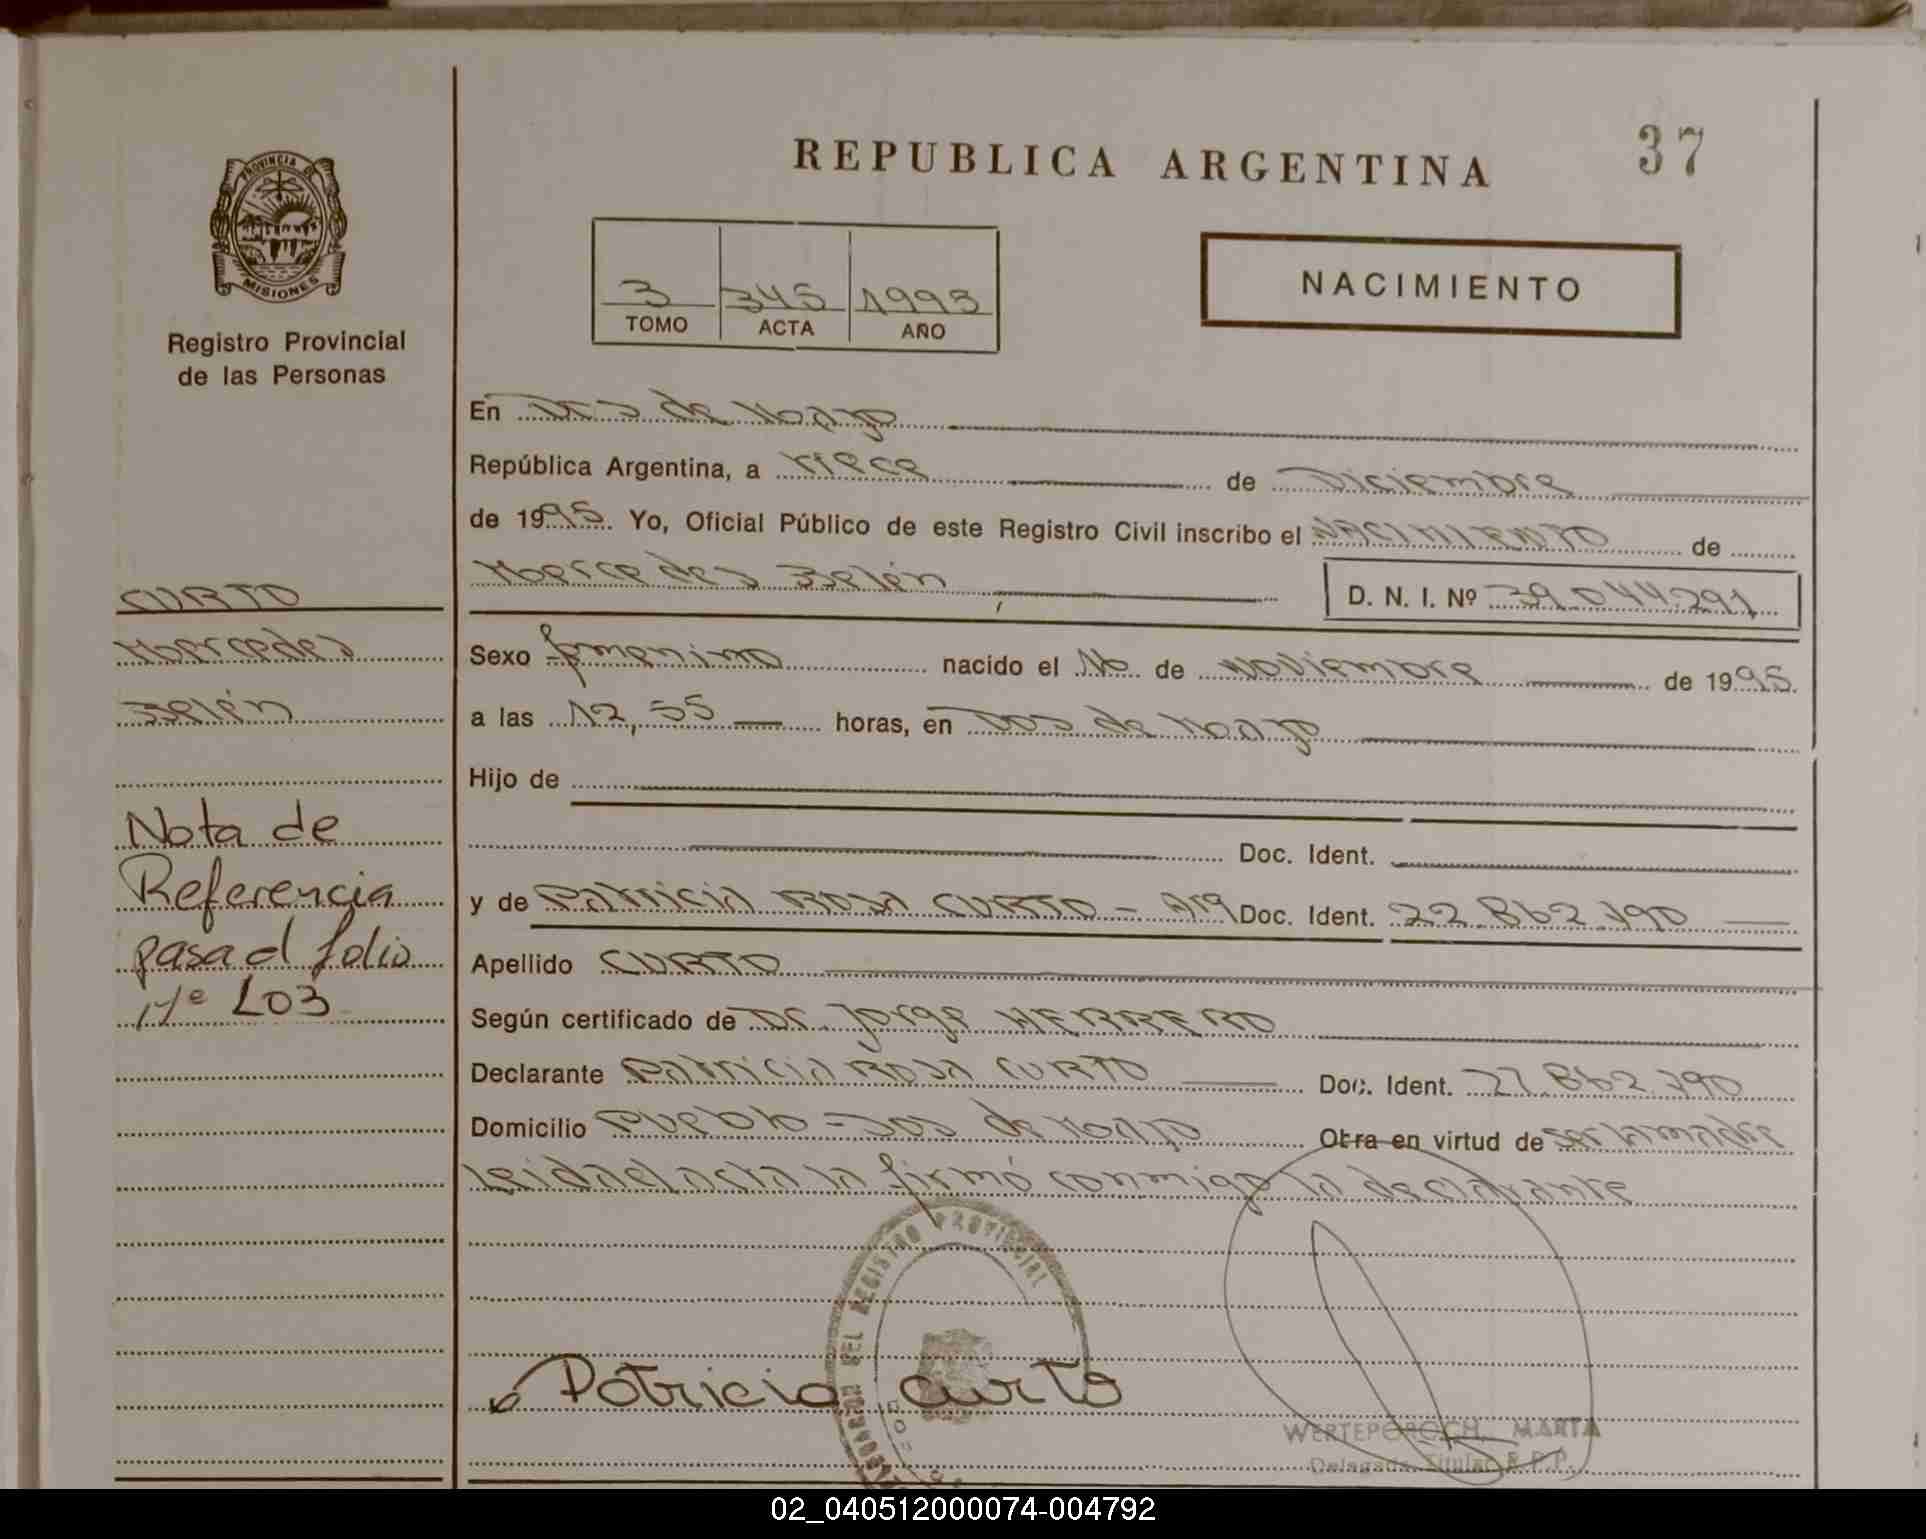 REPUBLICA ARGENTINA
37
PROVINCIA DE
MISIONES
Registro Provincial
de las Personas
3 345 1995
TOMO ACTA AÑO
NACIMIENTO
En Dos de Mayo
República Argentina, a trece de Diciembre
de 1995. Yo, Oficial Público de este Registro Civil inscribo el NACIMIENTO de
Mercedes Belén D. N. I. Nº 39.044.291
CURTO
Mercedes
Belén
Sexo femenino nacido el 16 de Noviembre de 1995
a las 12,55 horas, en Dos de Mayo
Hijo de
Doc. Ident.
y de Patricia ROSA CURTO - Arg Doc. Ident. 22.862.790
Apellido CURTO
Según certificado de Dr. Jorge HERRERO
Declarante Patricia ROSA CURTO Doc. Ident. 22.862.790
Domicilio Pueblo - Dos de Mayo Obra en virtud de ser la madre
Leida el acta la firmó conmigo la declarante
Nota de
Referencia
pasa al folio
Nº 103
REGISTRO PROVINCIAL
Patricia Curto
MARTA
Delegada Titular R.P.P.
02_040512000074-004792